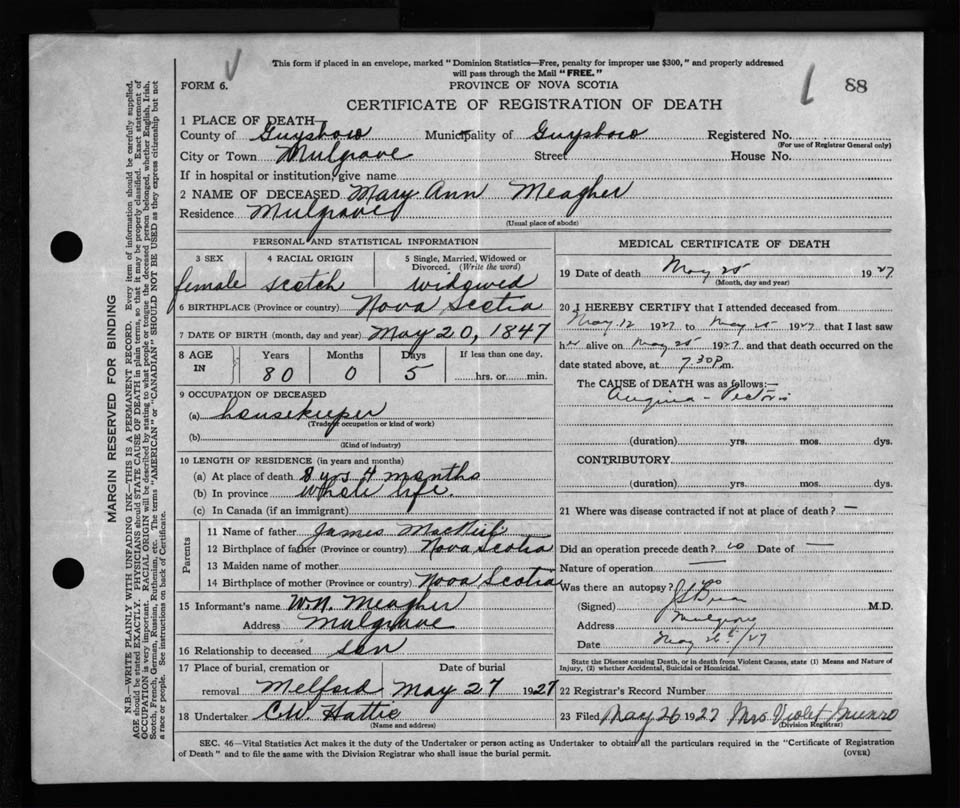 This form if placed in an envelope, marked "Dominion Statistics—Free, penalty for improper use $300," and properly addressed
will pass through the Mail "FREE."
FORM 6.
PROVINCE OF NOVA SCOTIA
88
CERTIFICATE OF REGISTRATION OF DEATH
1 PLACE OF DEATH—
County of Guysboro Municipality of Guysboro Registered No.
(For use of Registrar General only)
City or Town Mulgrave Street House No.
If in hospital or institution, give name
2 NAME OF DECEASED Mary Ann Meagher
Residence Mulgrave
(Usual place of abode)
PERSONAL AND STATISTICAL INFORMATION
3 SEX 4 RACIAL ORIGIN 5 Single, Married, Widowed or Divorced. (Write the word)
female scotch widowed
6 BIRTHPLACE (Province or country) Nova Scotia
7 DATE OF BIRTH (month, day and year) May 20, 1847
8 AGE IN Years Months Days If less than one day,
80 0 5 hrs. or min.
9 OCCUPATION OF DECEASED
(a) housekeeper
(Trade, occupation or kind of work)
(b)
(Kind of industry)
10 LENGTH OF RESIDENCE (in years and months)
(a) At place of death 8 yrs 4 months
(b) In province whole life.
(c) In Canada (if an immigrant)
Parents
11 Name of father James MacNeil
12 Birthplace of father (Province or country) Nova Scotia
13 Maiden name of mother
14 Birthplace of mother (Province or country) Nova Scotia
15 Informant's name W.N. Meagher
Address Mulgrave
16 Relationship to deceased son
17 Place of burial, cremation or Date of burial
removal Melford May 27 1927
18 Undertaker C.W. Hattie
(Name and address)
MEDICAL CERTIFICATE OF DEATH
19 Date of death May 25 1927
(Month, day and year)
20 I HEREBY CERTIFY that I attended deceased from
May 12 1927 to May 25 1927 that I last saw
her alive on May 25 1927 and that death occurred on the
date stated above, at 7.30 P.m.
The CAUSE of DEATH was as follows:—
Angina - Pectoris
(duration) yrs. mos. dys.
CONTRIBUTORY
(duration) yrs. mos. dys.
21 Where was disease contracted if not at place of death? —
Did an operation precede death? no Date of —
Nature of operation —
Was there an autopsy? no
(Signed) M.D.
Address Mulgrave
Date May 26th/27
State the Disease causing Death, or in death from Violent Causes, state (1) Means and Nature of
Injury, (2) whether Accidental, Suicidal or Homicidal.
22 Registrar's Record Number
23 Filed May 26 1927 Mrs. Violet Munro
(Division Registrar)
SEC. 46—Vital Statistics Act makes it the duty of the Undertaker or person acting as Undertaker to obtain all the particulars required in the "Certificate of Registration
of Death" and to file the same with the Division Registrar who shall issue the burial permit.
(OVER)
MARGIN RESERVED FOR BINDING
N.B.—WRITE PLAINLY WITH UNFADING INK—THIS IS A PERMANENT RECORD. Every item of information should be carefully supplied.
AGE should be stated EXACTLY. PHYSICIANS should STATE CAUSE OF DEATH in plain terms, so that it may be properly classified. Exact statement of
OCCUPATION is very important. RACIAL ORIGIN will be described by stating to what people or tongue the deceased person belonged, whether English, Irish,
Scotch, French, German, Russian, Ruthenian, etc. The terms "AMERICAN" or "CANADIAN" SHOULD NOT BE USED as they express citizenship but not
a race or people. See instructions on back of Certificate.